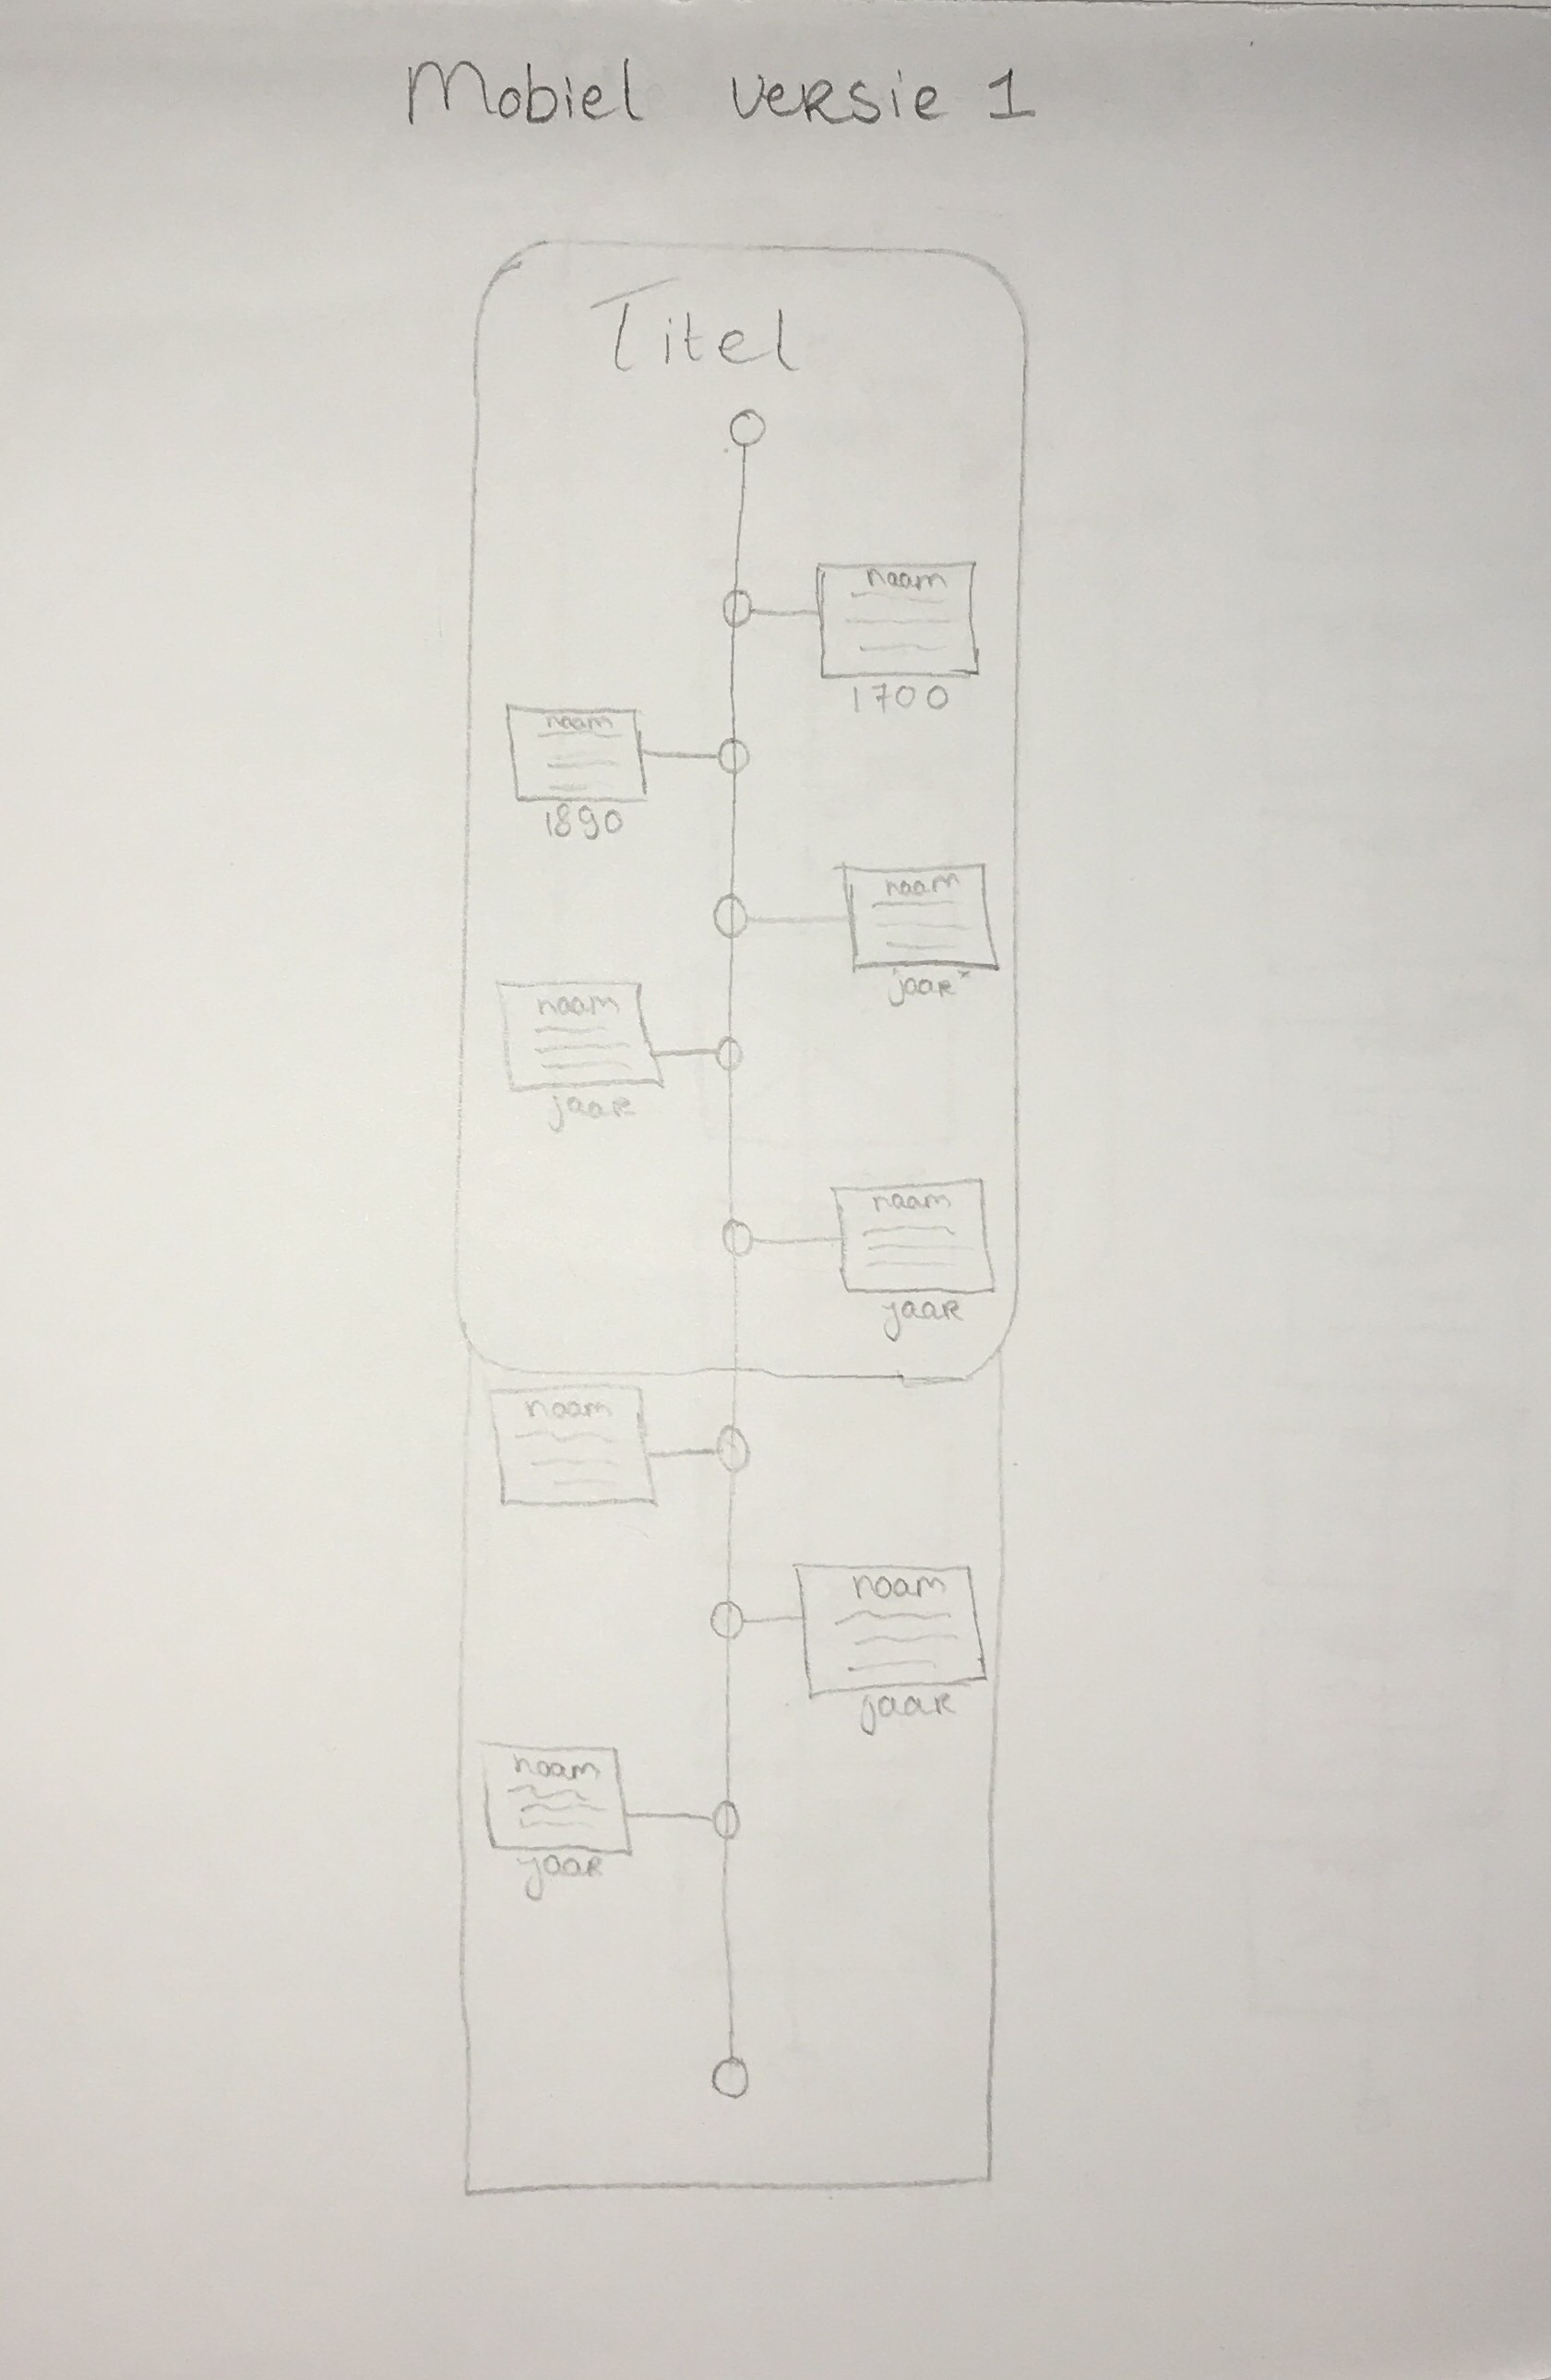 Mobiel versie 1
Titel
naam
1700
naam
1890
naam
jaar*
naam
jaar
naam
jaar
naam
naam
jaar
naam
jaar